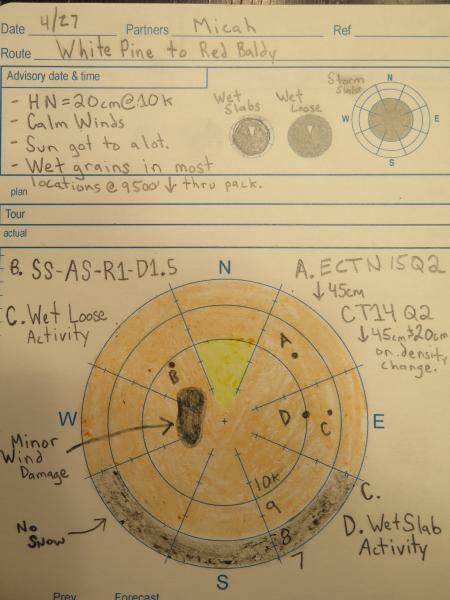 Date 4/27 Partners Micah Ref
Route White Pine to Red Baldy
Advisory date & time
- HN=20cm@10k
- Calm Winds
- Sun got to alot.
- Wet grains in most
locations @ 9500' ↓ thru pack.
Wet Slabs
Wet Loose
Storm Slabs
N
W
E
S
plan
Tour
actual
B. SS-AS-R1-D1.5
N
A. ECTN 15 Q2
↓45cm
CT14 Q2
↓45cm & 20cm
on density
change.
C. Wet Loose
Activity
A
B
W
D
C
E
Minor
Wind
Damage
10k
9
8
7
No
Snow
C.
D. Wet Slab
Activity
S
Prev Forecast